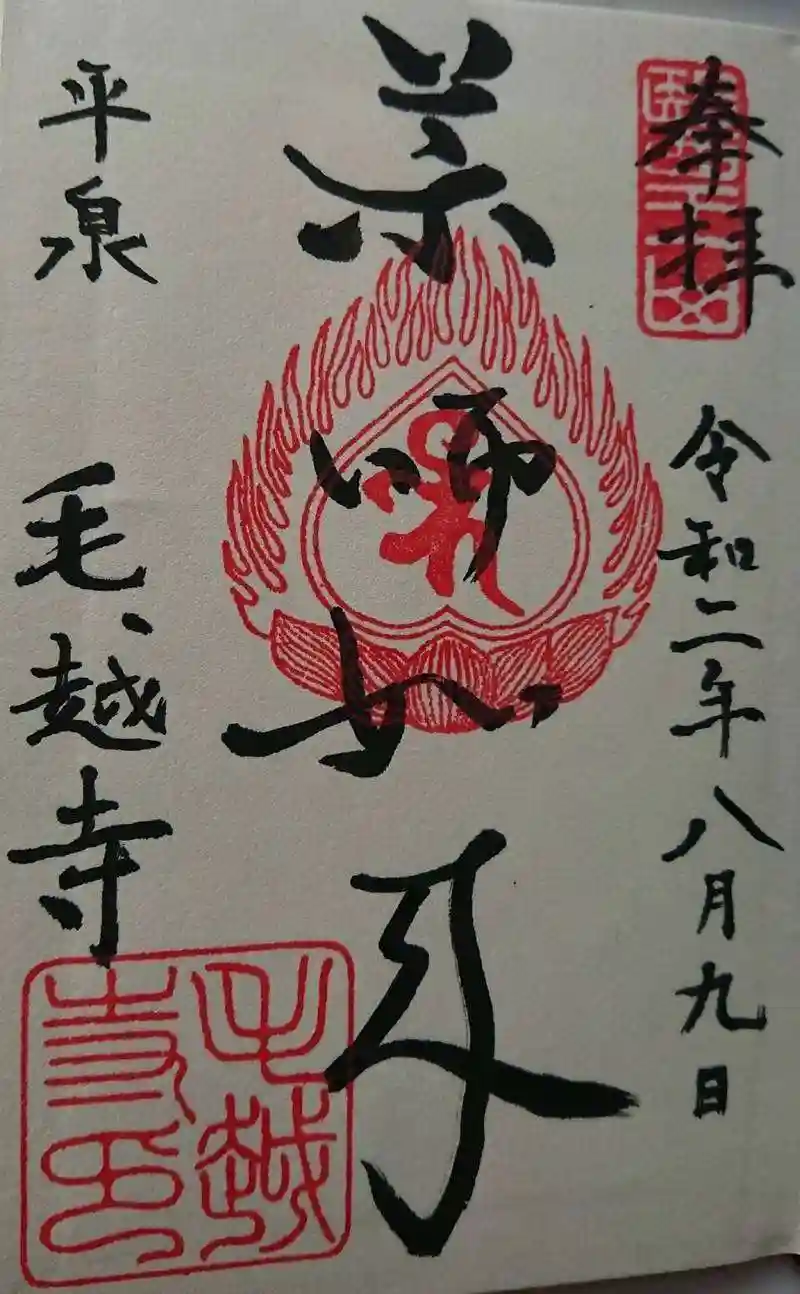 奉拝
令和二年八月九日
薬師如来
平泉 毛越寺
毛越
寺印